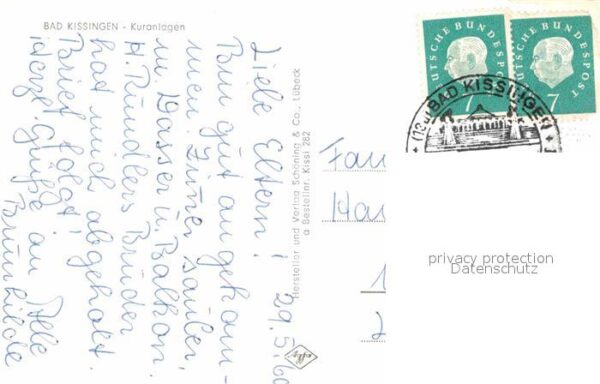 BAD KISSINGEN - Kuranlagen
29.5.60
Liebe Eltern!
Bin gut angekom-
men. Zimmer sauber,
m. Wasser u. Balkon.
H. Ründlers Brüder
hat mich abgeholt.
Brief folgt!
Herzl. Grüße an Alle
Brunhilde
Hersteller und Verlag Schöning & Co., Lübeck
Bestellnr. Kissi 282
DEUTSCHE BUNDESPOST
7
DEUTSCHE BUNDESPOST
7
BAD KISSINGEN
Fam
privacy protection
Datenschutz